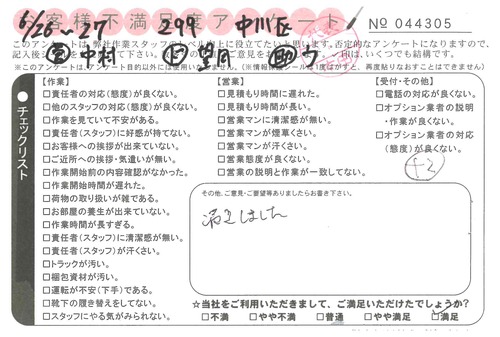 お客様不満足度アンケート No 044305
6/26～27 299 中川区
中村 望月
このアンケートは、弊社作業スタッフのレベル向上に役立てたいと思います。否定的なアンケートになりますので、
※このアンケートは、アンケート目的以外には使用いたしません。(※情報保護シールは1度はがすと、再度貼りなおすことはできません)
チェックリスト
【作業】
□責任者の対応(態度)が良くない。
□他のスタッフの対応(態度)が良くない。
□作業を見ていて不安がある。
□責任者(スタッフ)に好感が持てない。
□お客様への挨拶が出来ていない。
□ご近所への挨拶・気遣いが無い。
□作業開始前の内容確認がなかった。
□作業開始時間が遅れた。
□荷物の取り扱いが雑である。
□お部屋の養生が出来ていない。
□作業時間が長すぎる。
□責任者(スタッフ)に清潔感が無い。
□責任者(スタッフ)が汗くさい。
□トラックが汚い。
□梱包資材が汚い。
□運転が不安(下手)である。
□靴下の履き替えをしてない。
□スタッフにやる気がみられない。
【営業】
□見積もり時間に遅れた。
□見積もり時間が長い。
□営業マンに清潔感が無い。
□営業マンが煙草くさい。
□営業マンが汗くさい。
□営業態度が良くない。
□営業の説明と作業が一致してない。
【受付・その他】
□電話の対応が良くない。
□オプション業者の説明
・作業が良くない。
□オプション業者の対応
(態度)が良くない。
+2
その他、ご意見・ご要望等ありましたらお書き下さい。
満足しました
☆当社をご利用いただきまして、ご満足いただけたでしょうか?
□不満 □やや不満 □普通 □やや満足 □満足